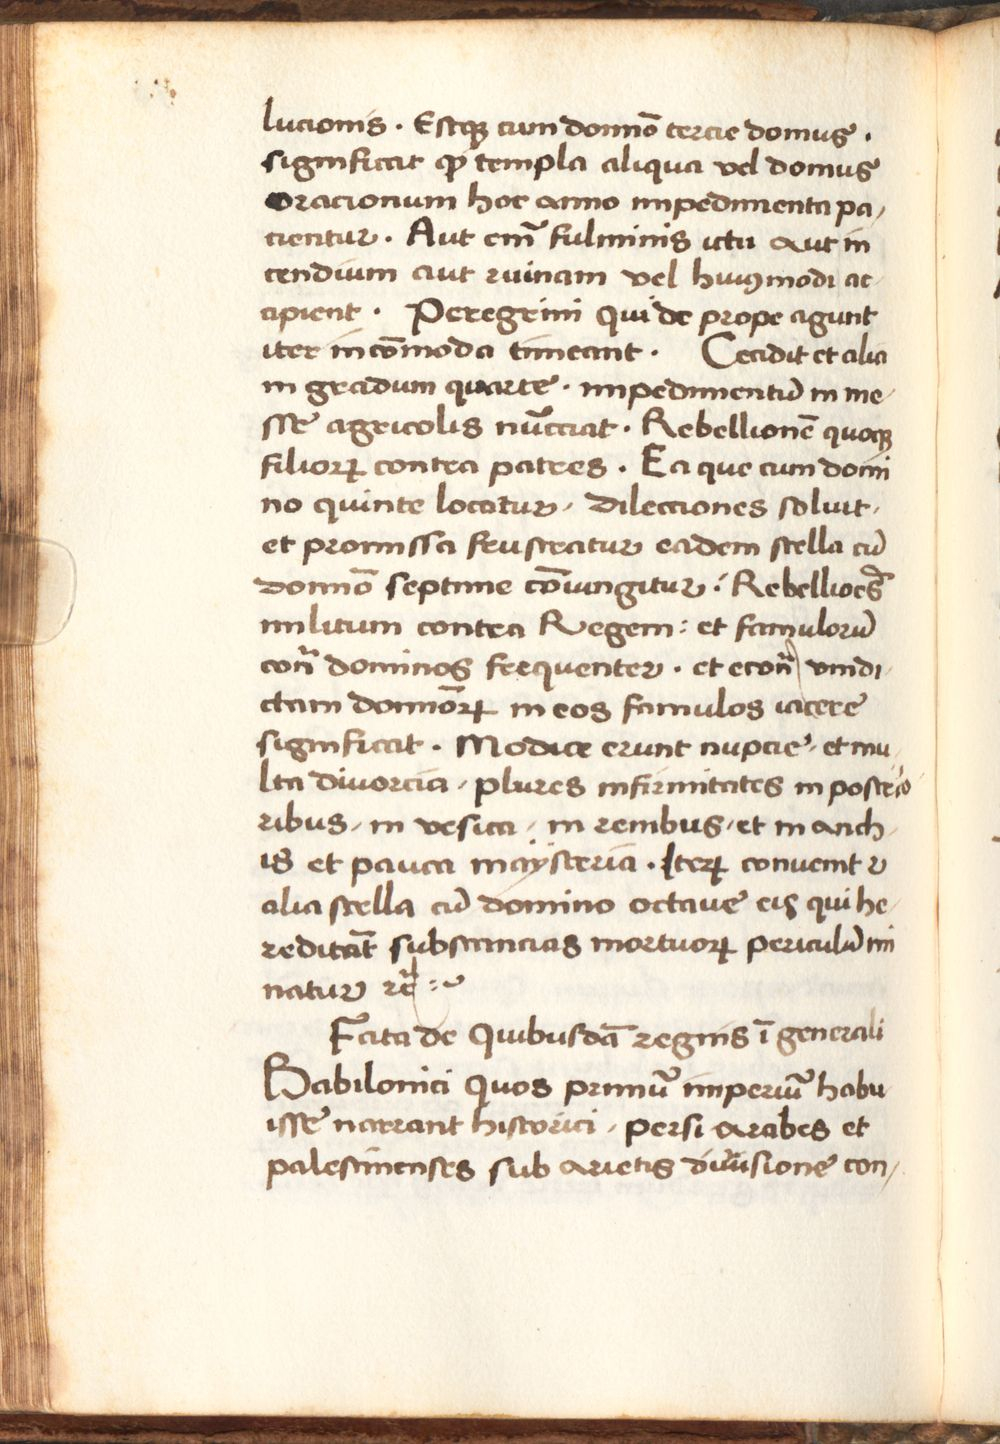 lucionis . Estqꝫ cum domĩo tercie domus .
significat ꝙ templa aliqua vel domus
oracionum hoc anno impedimenta pa/
cientur . Aut em̃ fulminis ictu aut in
cendium aut ruinam vel huiꝯmodi ac-
cipient . Peregrini qui de prope agunt
iter incõmoda timeant . Cecidit et alia
in gradum quarte . impedimentũ in me/
sse agricolis nũcciat . Rebellionẽ quoqꝫ
filioꝝ contra patres . Ea que cum domi
no quinte locatur / dilecciones soluit .
et promissa frustratur eadem stella cũ
domĩo septime cõiungitur . Rebellioẽs
militum contra Regem : et famulorũ
con̄ dominos frequenter . et econ̄ vindi-
ctam domĩoꝝ in eos famulos iacere
significat . Modice erunt nupcie . et mu/
lta diuorcia / plures infirmitates in posterio
ribus / in vesica / in renibus / et in anch/
is et pauca maÿsteria . Iteꝝ conuenit r
alia stella cũ domino octaue eis qui he/
reditãt substancias mortuoꝝ periculũ mi
natur rc̃ :~
Fata de Quibusdã regnis ĩ generali
Babilonici Quos primũ imperiũ habu
isse narrant historici / persi arabes et
palestinenses sub arietis diuisione con/